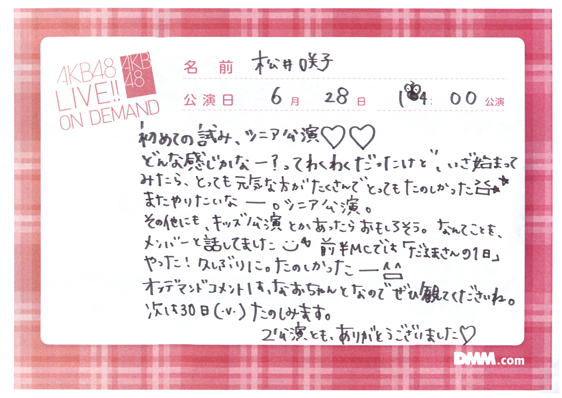 AKB48
LIVE!!
ON DEMAND
AKB
48
名 前 松井咲子
公演日 6月 28日 14:00公演
初めての試み、シニア公演♡♡
どんな感じかなー?ってわくわくだったけど、いざ始まって
みたら、とっても元気な方がたくさんでとってもたのしかった
またやりたいなー。シニア公演。
その他にも、キッズ公演とかあったらおもしろそう。なんてことを、
メンバーと話してました 前半MCでは「だるまさんの1日」
やった!久しぶりに。たのしかったー^^
オンデマンドコメントは、なおちゃんとなのでぜひ観てくださいね。
次は30日(・v・)たのしみます。
2公演とも、ありがとうございました♡
DMM.com